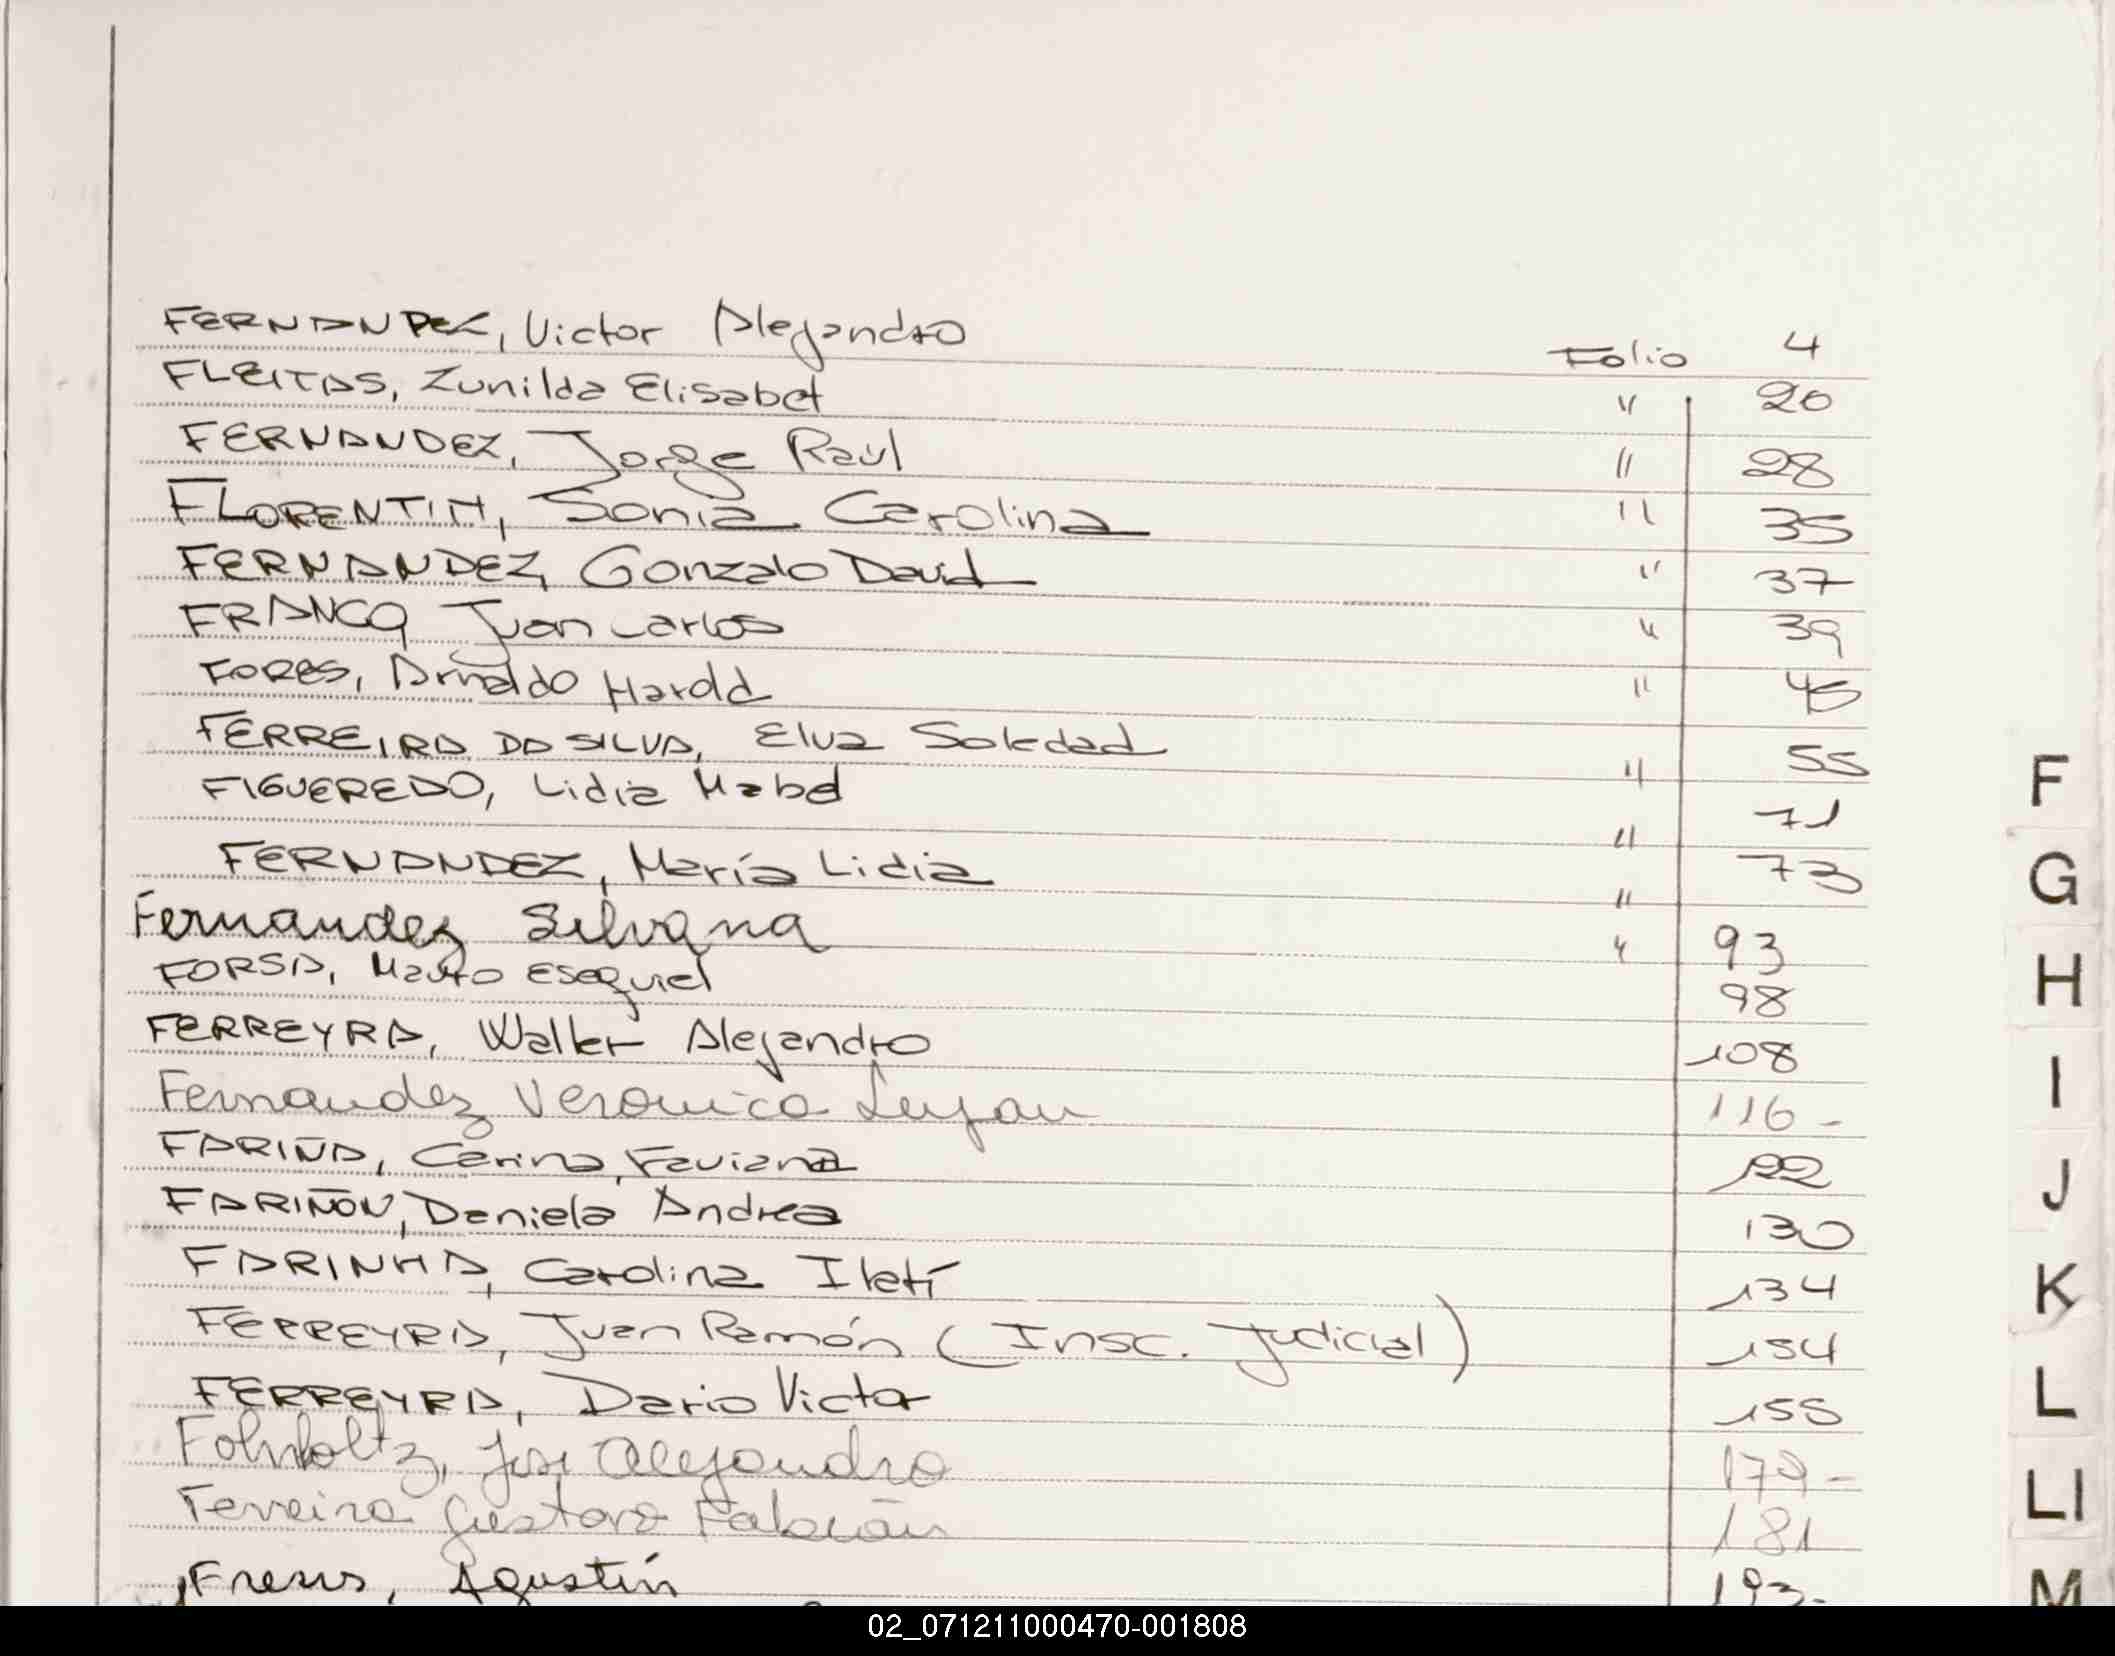 FERNANDEZ, Victor Alejandro Folio 4
FLEITAS, Zunilda Elisabet " 20
FERNANDEZ, Jorge Raúl " 28
FLORENTIN, Sonia Carolina " 35
FERNANDEZ, Gonzalo David " 37
FRANCO, Juan Carlos " 39
FORES, Arnaldo Harold " 45
FERREIRA DA SILVA, Elva Soledad " 55
FIGUEREDO, Lidia Mabel " 71
FERNANDEZ, María Lidia " 73
Fernandez Silvana " 93
FORSA, Mauro Esequiel 98
FERREYRA, Walter Alejandro 108
Fernandez Veronica Lujan 116-
FARIÑA, Carina Faviana 122
FARIÑON, Daniela Andrea 130
FARINHA, Carolina Itatí 134
FERREYRA, Juan Ramón (Insc. Judicial) 154
FERREYRA, Dario Victor 155
José Alejandro 179-
Ferreira Gustavo Fabián 181
Agustín 193-
F
G
H
I
J
K
L
Ll
M
02_071211000470-001808